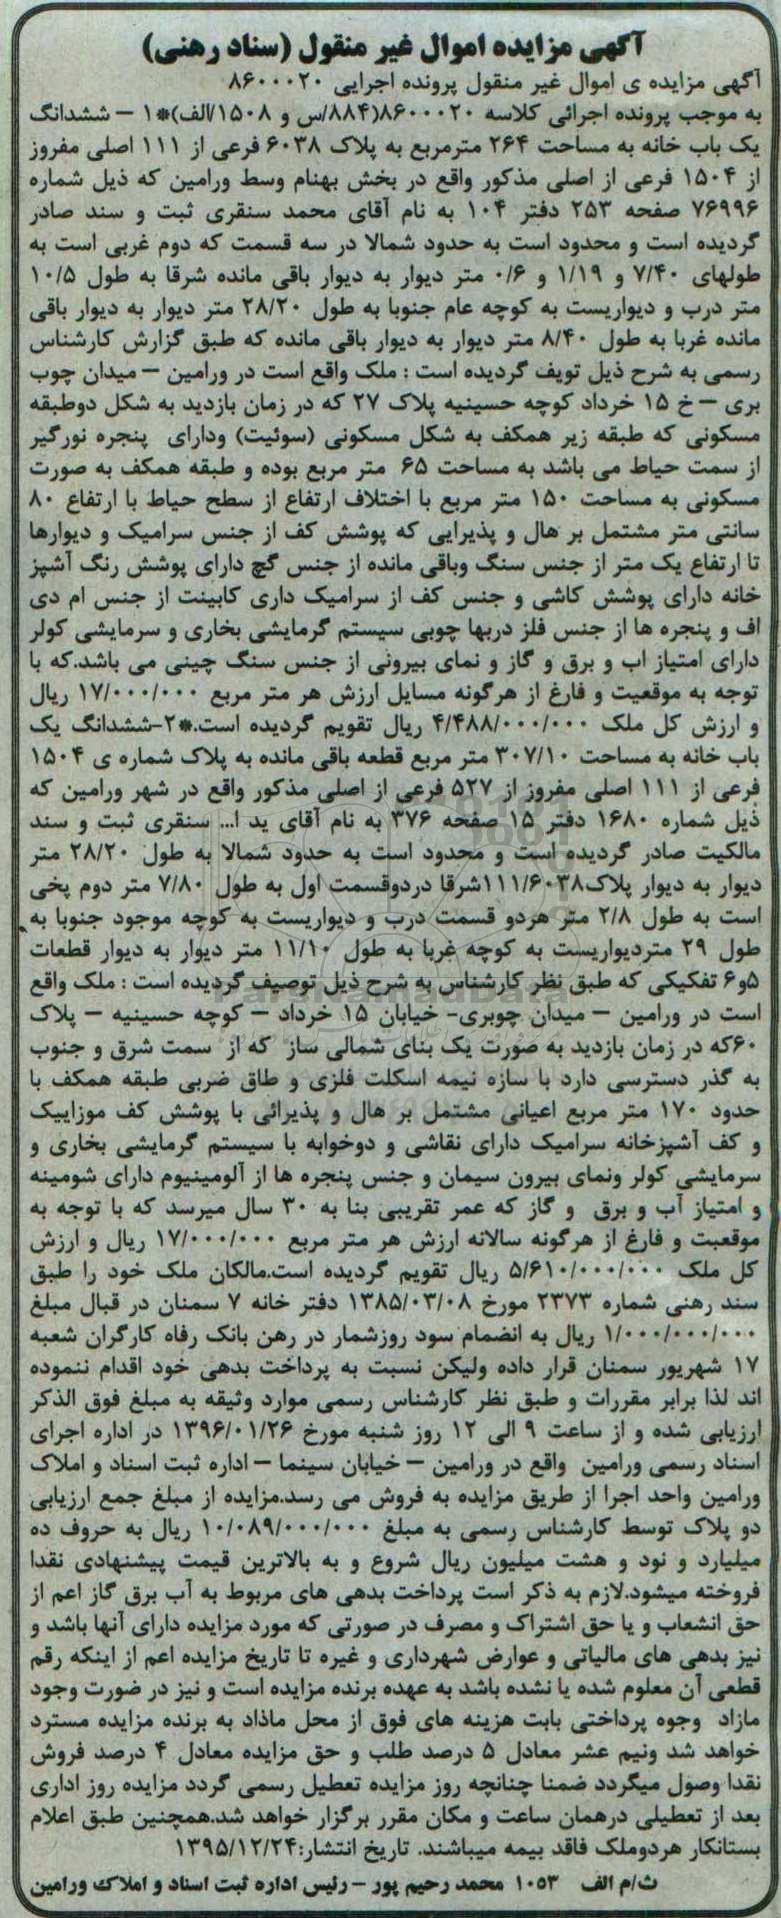 آگهی مزایده اموال غیر منقول (سناد رهنی)
آگهی مزایده ی اموال غیر منقول پرونده اجرایی ۸۶۰۰۰۲۰
به موجب پرونده اجرائی کلاسه ۸۶۰۰۰۲۰(۸۸۴/س و ۱۵۰۸/الف)*۱ – ششدانگ
یک باب خانه به مساحت ۲۶۴ مترمربع به پلاک ۶۰۳۸ فرعی از ۱۱۱ اصلی مفروز
از ۱۵۰۴ فرعی از اصلی مذکور واقع در بخش بهنام وسط ورامین که ذیل شماره
۷۶۹۹۶ صفحه ۲۵۳ دفتر ۱۰۴ به نام آقای محمد سنقری ثبت و سند صادر
گردیده است و محدود است به حدود شمالا در سه قسمت که دوم غربی است به
طولهای ۷/۴۰ و ۱/۱۹ و ۰/۶ متر دیوار به دیوار باقی مانده شرقا به طول ۱۰/۵
متر درب و دیواریست به کوچه عام جنوبا به طول ۲۸/۲۰ متر دیوار به دیوار باقی
مانده غربا به طول ۸/۴۰ متر دیوار به دیوار باقی مانده که طبق گزارش کارشناس
رسمی به شرح ذیل تویف گردیده است : ملک واقع است در ورامین – میدان چوب
بری – خ ۱۵ خرداد کوچه حسینیه پلاک ۲۷ که در زمان بازدید به شکل دوطبقه
مسکونی که طبقه زیر همکف به شکل مسکونی (سوئیت) ودارای پنجره نورگیر
از سمت حیاط می باشد به مساحت ۶۵ متر مربع بوده و طبقه همکف به صورت
مسکونی به مساحت ۱۵۰ متر مربع با اختلاف ارتفاع از سطح حیاط با ارتفاع ۸۰
سانتی متر مشتمل بر هال و پذیرایی که پوشش کف از جنس سرامیک و دیوارها
تا ارتفاع یک متر از جنس سنگ وباقی مانده از جنس گچ دارای پوشش رنگ آشپز
خانه دارای پوشش کاشی و جنس کف از سرامیک داری کابینت از جنس ام دی
اف و پنجره ها از جنس فلز دربها چوبی سیستم گرمایشی بخاری و سرمایشی کولر
دارای امتیاز اب و برق و گاز و نمای بیرونی از جنس سنگ چینی می باشد.که با
توجه به موقعیت و فارغ از هرگونه مسایل ارزش هر متر مربع ۱۷/۰۰۰/۰۰۰ ریال
و ارزش کل ملک ۴/۴۸۸/۰۰۰/۰۰۰ ریال تقویم گردیده است.*۲-ششدانگ یک
باب خانه به مساحت ۳۰۷/۱۰ متر مربع قطعه باقی مانده به پلاک شماره ی ۱۵۰۴
فرعی از ۱۱۱ اصلی مفروز از ۵۲۷ فرعی از اصلی مذکور واقع در شهر ورامین که
ذیل شماره ۱۶۸۰ دفتر ۱۵ صفحه ۳۷۶ به نام آقای ید ا... سنقری ثبت و سند
مالکیت صادر گردیده است و محدود است به حدود شمالا به طول ۲۸/۲۰ متر
دیوار به دیوار پلاک۱۱۱/۶۰۳۸شرقا دردوقسمت اول به طول ۷/۸۰ متر دوم پخی
است به طول ۲/۸ متر هردو قسمت درب و دیواریست به کوچه موجود جنوبا به
طول ۲۹ متردیواریست به کوچه غربا به طول ۱۱/۱۰ متر دیوار به دیوار قطعات
۵و۶ تفکیکی که طبق نظر کارشناس به شرح ذیل توصیف گردیده است : ملک واقع
است در ورامین – میدان چوبری- خیابان ۱۵ خرداد – کوچه حسینیه – پلاک
۶۰که در زمان بازدید به صورت یک بنای شمالی ساز که از سمت شرق و جنوب
به گذر دسترسی دارد با سازه نیمه اسکلت فلزی و طاق ضربی طبقه همکف با
حدود ۱۷۰ متر مربع اعیانی مشتمل بر هال و پذیرائی با پوشش کف موزاییک
و کف آشپزخانه سرامیک دارای نقاشی و دوخوابه با سیستم گرمایشی بخاری و
سرمایشی کولر ونمای بیرون سیمان و جنس پنجره ها از آلومینیوم دارای شومینه
و امتیاز آب و برق و گاز که عمر تقریبی بنا به ۳۰ سال میرسد که با توجه به
موقعیت و فارغ از هرگونه سالانه ارزش هر متر مربع ۱۷/۰۰۰/۰۰۰ ریال و ارزش
کل ملک ۵/۶۱۰/۰۰۰/۰۰۰ ریال تقویم گردیده است.مالکان ملک خود را طبق
سند رهنی شماره ۲۳۷۳ مورخ ۱۳۸۵/۰۳/۰۸ دفتر خانه ۷ سمنان در قبال مبلغ
۱/۰۰۰/۰۰۰/۰۰۰ ریال به انضمام سود روزشمار در رهن بانک رفاه کارگران شعبه
۱۷ شهریور سمنان قرار داده ولیکن نسبت به پرداخت بدهی خود اقدام ننموده
اند لذا برابر مقررات و طبق نظر کارشناس رسمی موارد وثیقه به مبلغ فوق الذکر
ارزیابی شده و از ساعت ۹ الی ۱۲ روز شنبه مورخ ۱۳۹۶/۰۱/۲۶ در اداره اجرای
اسناد رسمی ورامین واقع در ورامین – خیابان سینما – اداره ثبت اسناد و املاک
ورامین واحد اجرا از طریق مزایده به فروش می رسد.مزایده از مبلغ جمع ارزیابی
دو پلاک توسط کارشناس رسمی به مبلغ ۱۰/۰۸۹/۰۰۰/۰۰۰ ریال به حروف ده
میلیارد و نود و هشت میلیون ریال شروع و به بالاترین قیمت پیشنهادی نقدا
فروخته میشود.لازم به ذکر است پرداخت بدهی های مربوط به آب برق گاز اعم از
حق انشعاب و یا حق اشتراک و مصرف در صورتی که مورد مزایده دارای آنها باشد و
نیز بدهی های مالیاتی و عوارض شهرداری و غیره تا تاریخ مزایده اعم از اینکه رقم
قطعی آن معلوم شده یا نشده باشد به عهده برنده مزایده است و نیز در صورت وجود
مازاد وجوه پرداختی بابت هزینه های فوق از محل ماذاد به برنده مزایده مسترد
خواهد شد ونیم عشر معادل ۵ درصد طلب و حق مزایده معادل ۴ درصد فروش
نقدا وصول میگردد ضمنا چنانچه روز مزایده تعطیل رسمی گردد مزایده روز اداری
بعد از تعطیلی درهمان ساعت و مکان مقرر برگزار خواهد شد.همچنین طبق اعلام
بستانکار هردوملک فاقد بیمه میباشند. تاریخ انتشار:۱۳۹۵/۱۲/۲۴
ث/م الف ۱۰۵۳ محمد رحیم پور – رئیس اداره ثبت اسناد و املاک ورامین